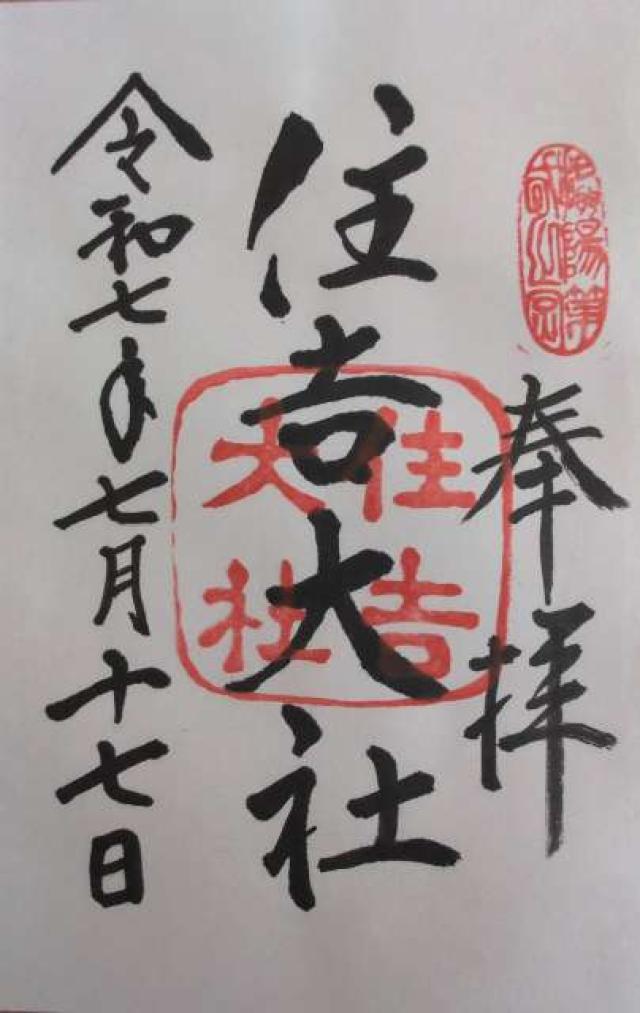 奉拝
住吉大社
住吉
大社
令和七年七月十七日